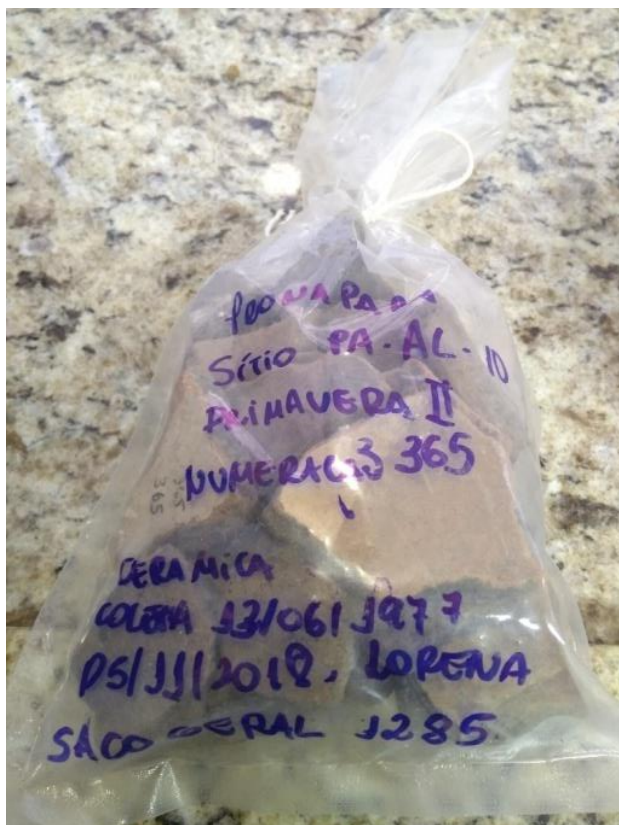 SÍTIO PA-AL-10
PRIMAVERA II
365
CERAMICA
COLETA 13/06/1977
05/11/2018. LORENA
SACO GERAL 1285
365
365